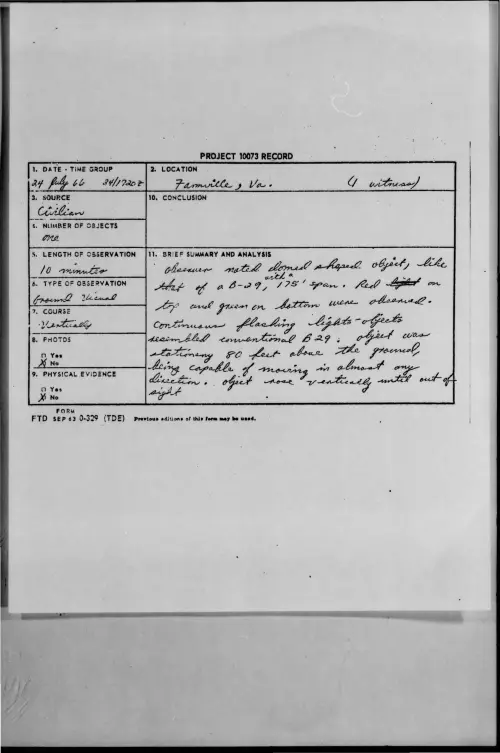 PROJECT 10073 RECORD
1. DATE - TIME GROUP
24 July 66 24/1720Z
2. LOCATION
Farmville, Va. (1 witness)
3. SOURCE
Civilian
10. CONCLUSION
4. NUMBER OF OBJECTS
one
5. LENGTH OF OBSERVATION
10 minutes
11. BRIEF SUMMARY AND ANALYSIS
observer noted domed shaped object, like
that of a B-29, with a 175' span. Red light on
top and green on bottom were observed.
continuous flashing lights-objects
resembled conventional B29. object was
stationary 80 feet above the ground,
being capable of moving in almost any
direction. object rose vertically until out of
sight
6. TYPE OF OBSERVATION
Ground Visual
7. COURSE
Vertically
8. PHOTOS
□ Yes
X No
9. PHYSICAL EVIDENCE
□ Yes
X No
FORM
FTD SEP 63 0-329 (TDE) Previous editions of this form may be used.